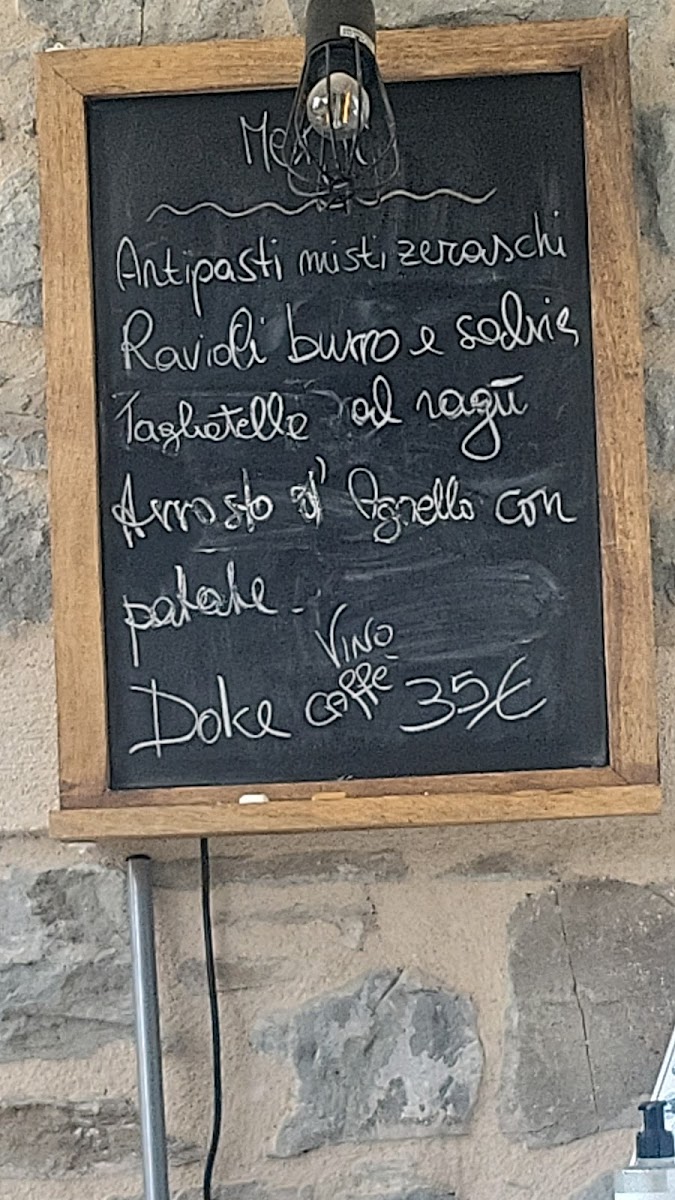 Antipasti misti zeraschi
Ravioli burro e salvia
Tagliatelle al ragù
Arrosto d'Agnello con
patate.
Vino
Dolce caffè 35€